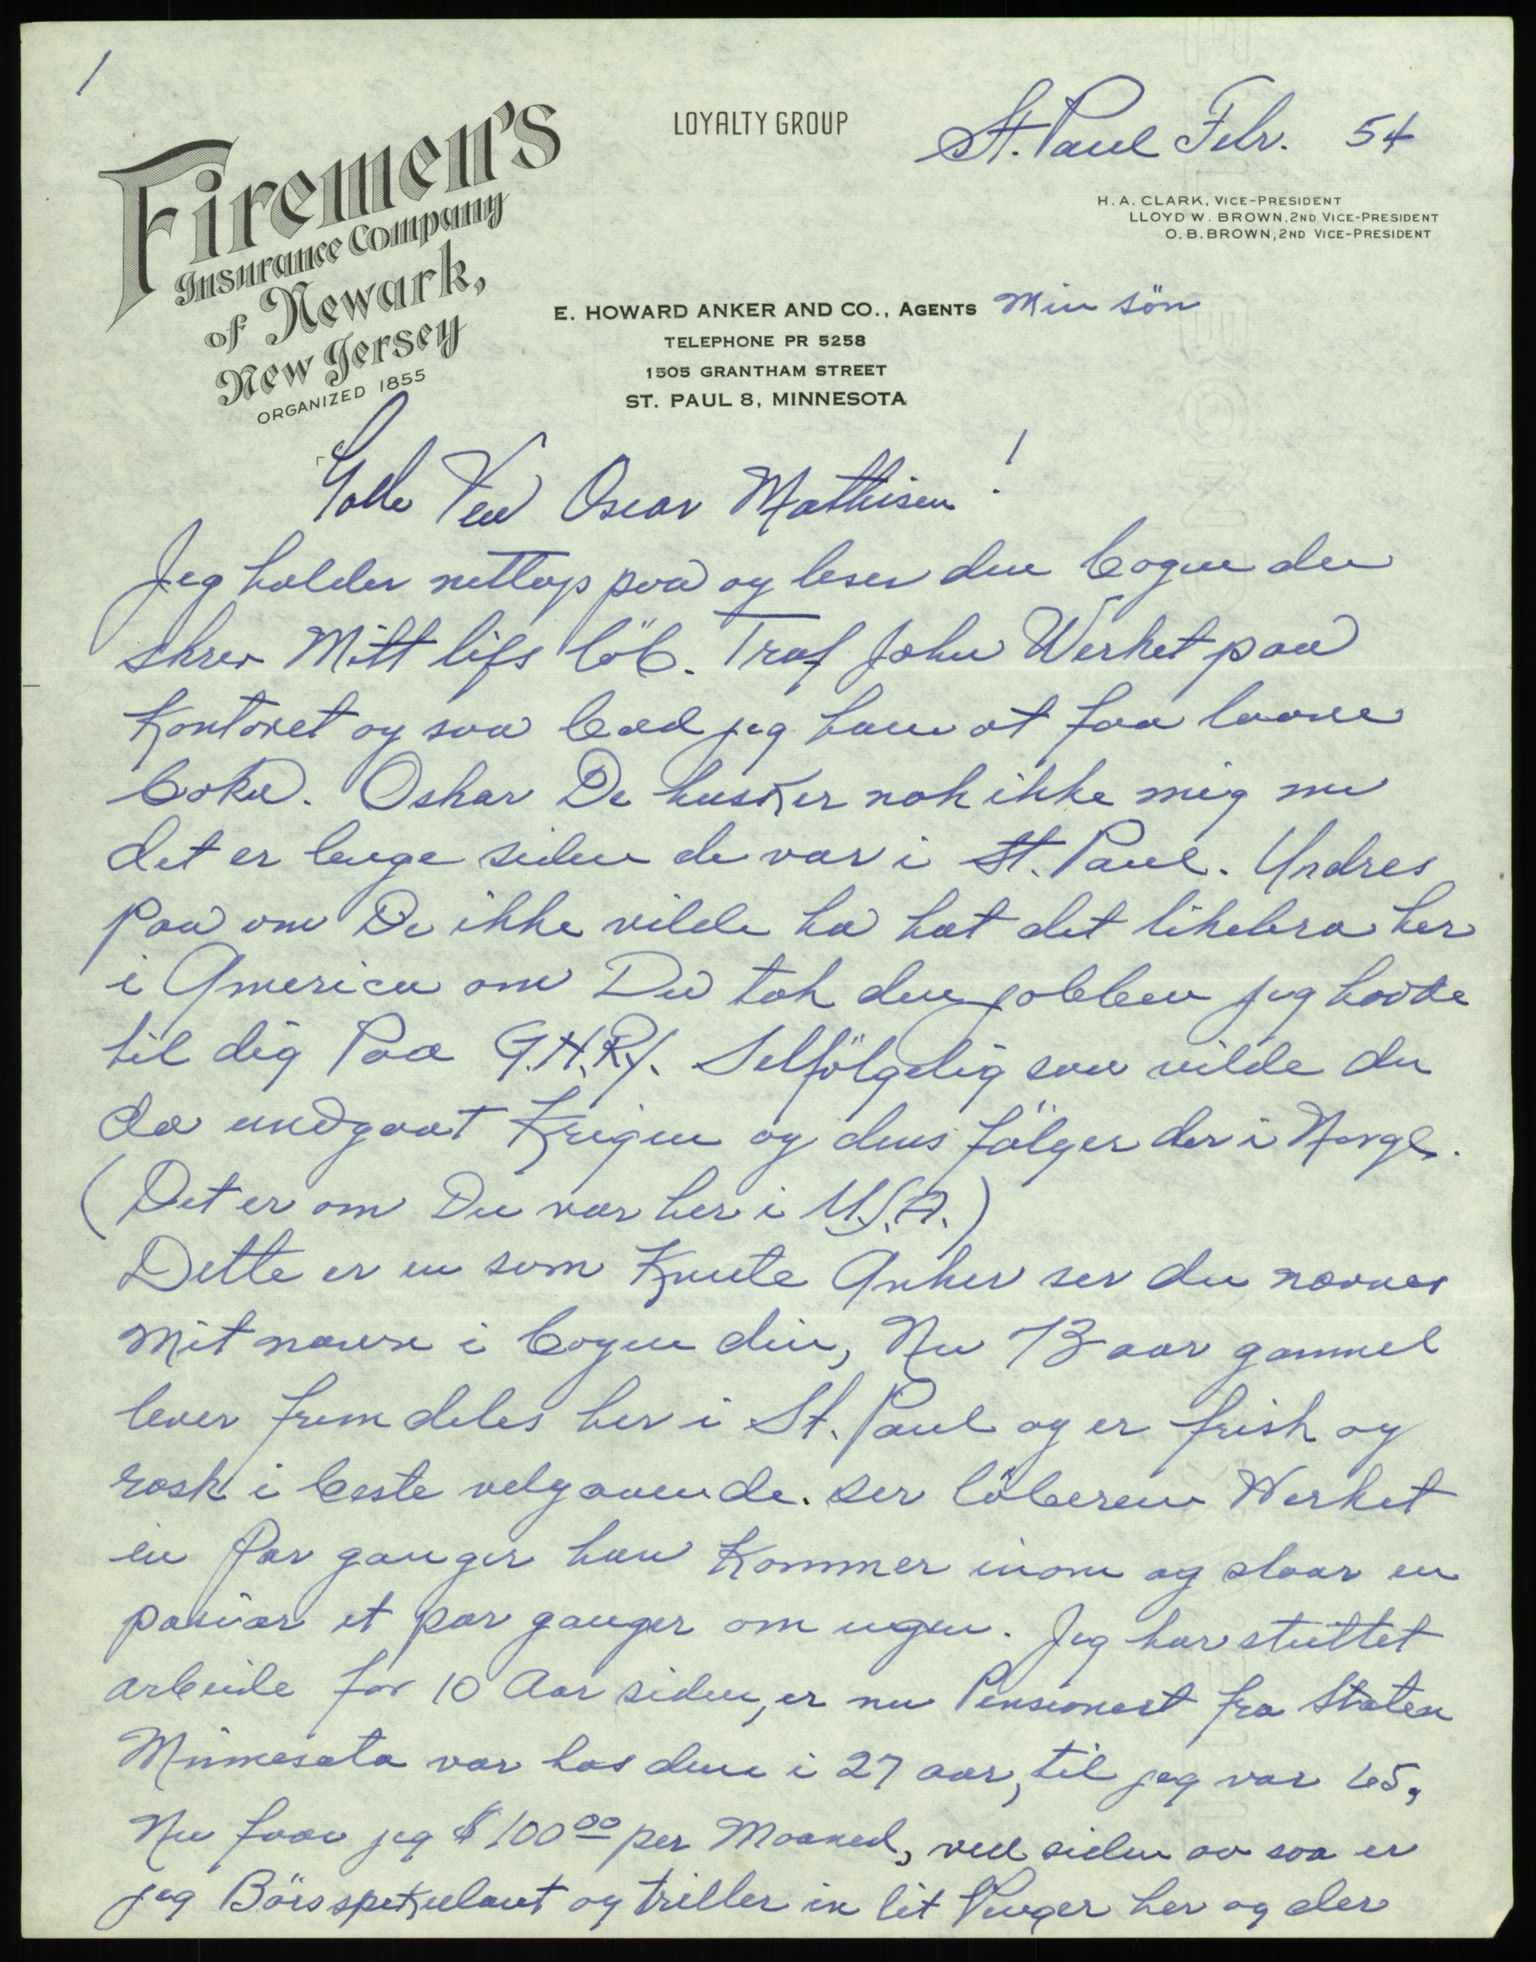 1
Firemen's
Insurance Company
of Newark,
New Jersey
ORGANIZED 1855
LOYALTY GROUP
St. Paul Febr. 54
H. A. CLARK, VICE-PRESIDENT
LLOYD W. BROWN, 2ND VICE-PRESIDENT
O. B. BROWN, 2ND VICE-PRESIDENT
E. HOWARD ANKER AND CO., AGENTS Min sön
TELEPHONE PR 5258
1505 GRANTHAM STREET
ST. PAUL 8, MINNESOTA
Ven Oscar Mathisen!
Jeg holder nettop paa og leser den bogen du
skrev Mitt lifs löb. Traf John Werket paa
Kontoret og saa bad jeg ham at faa laane
boka. Oskar De husker nok ikke mig nu
det er lenge siden de var i St. Paul. Undres
paa om De ikke vilde ha hat det likebra her
i America om Du tok den jobben jeg havde
til dig Paa G.N.Ry. Selfölgelig saa vilde du
da undgaat Krigen og dens fölger der i Norge.
(Det er om Du var her i U.S.A.)
Dette er en som Knute Anker ser du nævner
mit navn i bogen din, Nu 73 aar gammel
lever fremdeles her i St. Paul og er frisk og
rask i beste velgaaende. ser löberen Werket
en Par ganger han Kommer inom og slaar en
pasiar et par ganger om ugen. Jeg har sluttet
arbeide for 10 Aar siden, er nu Pensionert fra Staten
Minnesota var hos dem i 27 aar, til jeg var 65,
Nu faar jeg $100 00 per Moaned, ved siden av saa er
jeg Börsspekulant og triller in lit Penger her og der